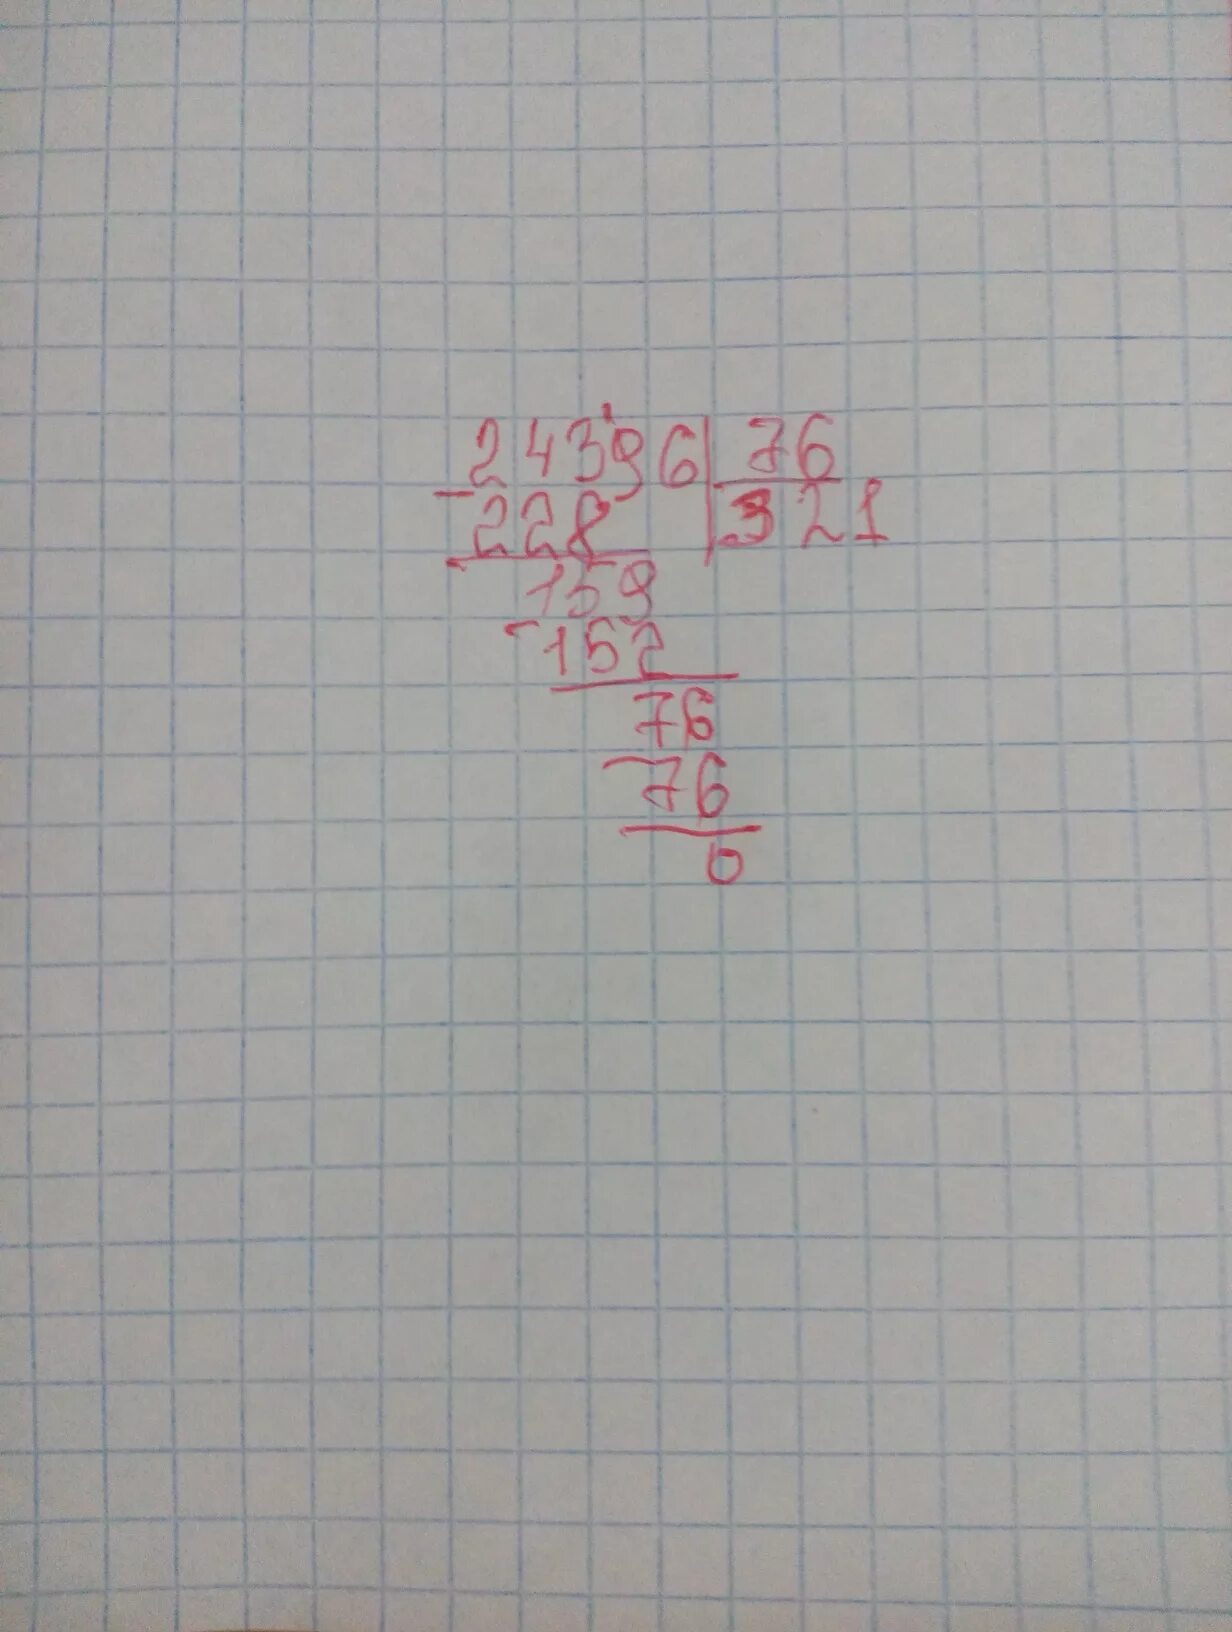 24396 76
228 321
159
152
76
76
0